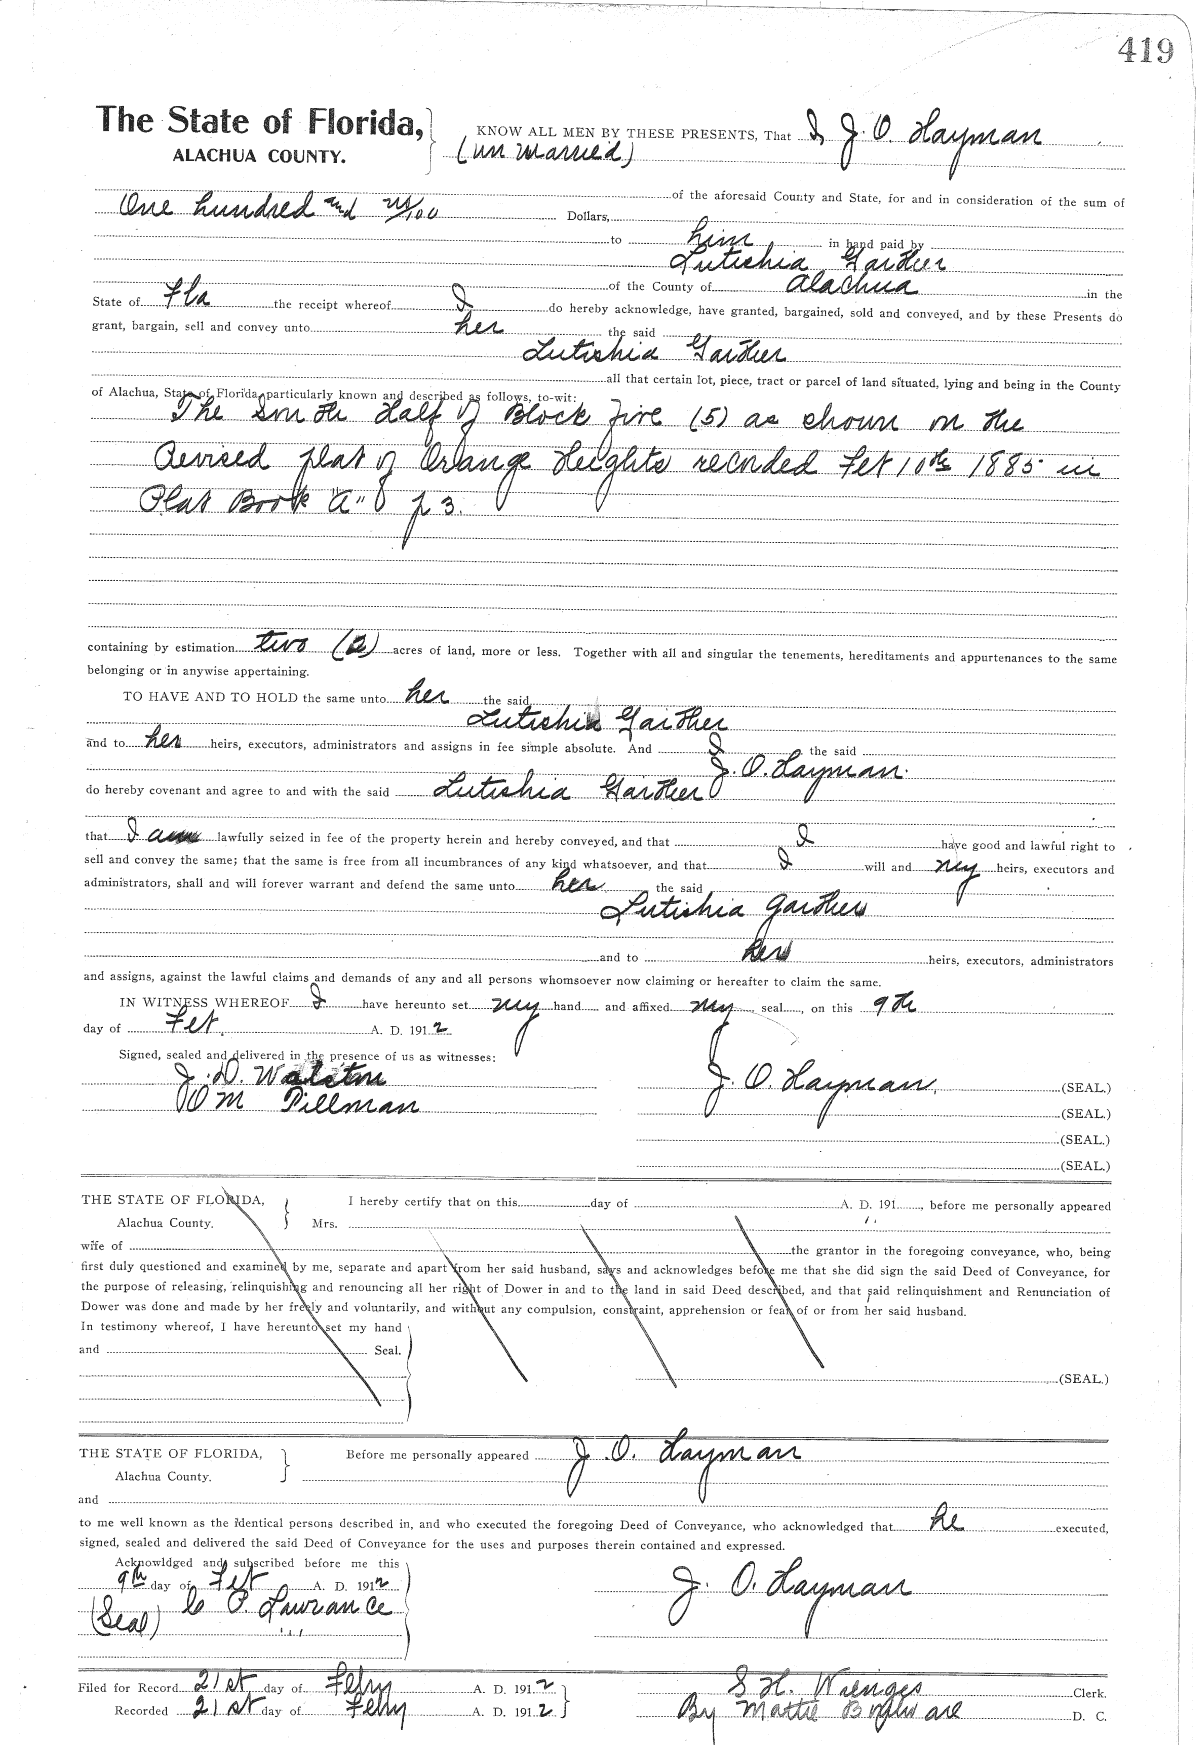 419
The State of Florida,
ALACHUA COUNTY.
KNOW ALL MEN BY THESE PRESENTS, That I, J. O. Hayman
(un married)
of the aforesaid County and State, for and in consideration of the sum of
One hundred and no/100 Dollars,
to him in hand paid by
Lutishia Gaither
of the County of Alachua in the
State of Fla the receipt whereof I do hereby acknowledge, have granted, bargained, sold and conveyed, and by these Presents do
grant, bargain, sell and convey unto her the said
Lutishia Gaither
all that certain lot, piece, tract or parcel of land situated, lying and being in the County
of Alachua, State of Florida, particularly known and described as follows, to-wit:
The South Half of Block five (5) as shown on the
Revised plat of Orange Heights recorded Feb 10th 1885 in
Plat Book "A" p 3.
containing by estimation two (2) acres of land, more or less. Together with all and singular the tenements, hereditaments and appurtenances to the same
belonging or in anywise appertaining.
TO HAVE AND TO HOLD the same unto her the said
Lutishia Gaither
and to her heirs, executors, administrators and assigns in fee simple absolute. And I the said
J. O. Hayman.
do hereby covenant and agree to and with the said Lutishia Gaither
that I am lawfully seized in fee of the property herein and hereby conveyed, and that I have good and lawful right to
sell and convey the same; that the same is free from all incumbrances of any kind whatsoever, and that I will and my heirs, executors and
administrators, shall and will forever warrant and defend the same unto her the said
Lutishia Gaither
and to her heirs, executors, administrators
and assigns, against the lawful claims and demands of any and all persons whomsoever now claiming or hereafter to claim the same.
IN WITNESS WHEREOF I have hereunto set my hand and affixed my seal, on this 9th
day of Feb. A. D. 1912
Signed, sealed and delivered in the presence of us as witnesses:
J. D. Walston
O M Tillman
J. O. Hayman. (SEAL.)
(SEAL.)
(SEAL.)
(SEAL.)
THE STATE OF FLORIDA,
Alachua County.
I hereby certify that on this day of A. D. 191 , before me personally appeared
Mrs.
wife of the grantor in the foregoing conveyance, who, being
first duly questioned and examined by me, separate and apart from her said husband, says and acknowledges before me that she did sign the said Deed of Conveyance, for
the purpose of releasing, relinquishing and renouncing all her right of Dower in and to the land in said Deed described, and that said relinquishment and Renunciation of
Dower was done and made by her freely and voluntarily, and without any compulsion, constraint, apprehension or fear of or from her said husband.
In testimony whereof, I have hereunto set my hand
and Seal.
(SEAL.)
THE STATE OF FLORIDA,
Alachua County.
Before me personally appeared J. O. Hayman
and
to me well known as the identical persons described in, and who executed the foregoing Deed of Conveyance, who acknowledged that he executed,
signed, sealed and delivered the said Deed of Conveyance for the uses and purposes therein contained and expressed.
Acknowldged and subscribed before me this
9th day of Feb A. D. 1912
(Seal) C P. Lawrance
J. O. Hayman
Filed for Record 21st day of Feby A. D. 1912
Recorded 21st day of Feby A. D. 1912
S. H. Wienges Clerk.
By Mattie D. C.